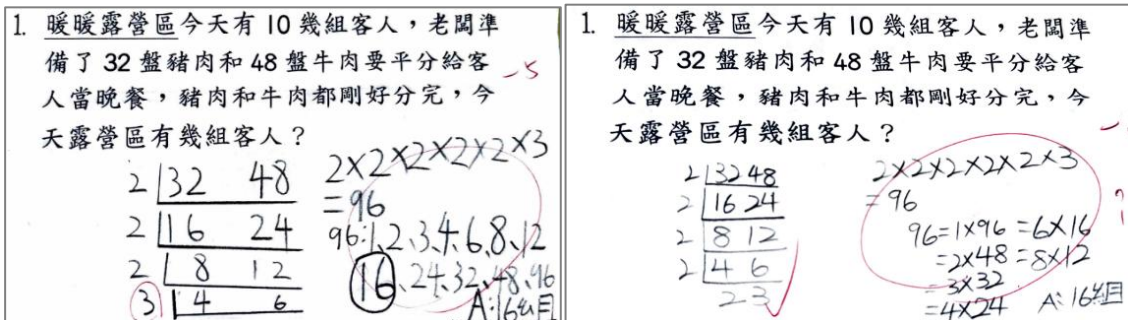 1. 暖暖露營區今天有 10 幾組客人，老闆準
備了 32 盤豬肉和 48 盤牛肉要平分給客
人當晚餐，豬肉和牛肉都剛好分完，今
天露營區有幾組客人？
-5
2 32 48
2 16 24
2 8 12
3 4 6
2×2×2×2×2×3
=96
96:1、2、3、4、6、8、12
16、24、32、48、96
A:16組
1. 暖暖露營區今天有 10 幾組客人，老闆準
備了 32 盤豬肉和 48 盤牛肉要平分給客
人當晚餐，豬肉和牛肉都剛好分完，今
天露營區有幾組客人？
2 32 48
2 16 24
2 8 12
2 4 6
2 3
2×2×2×2×2×3
=96
96=1×96=6×16
=2×48=8×12
=3×32
=4×24
A:16組